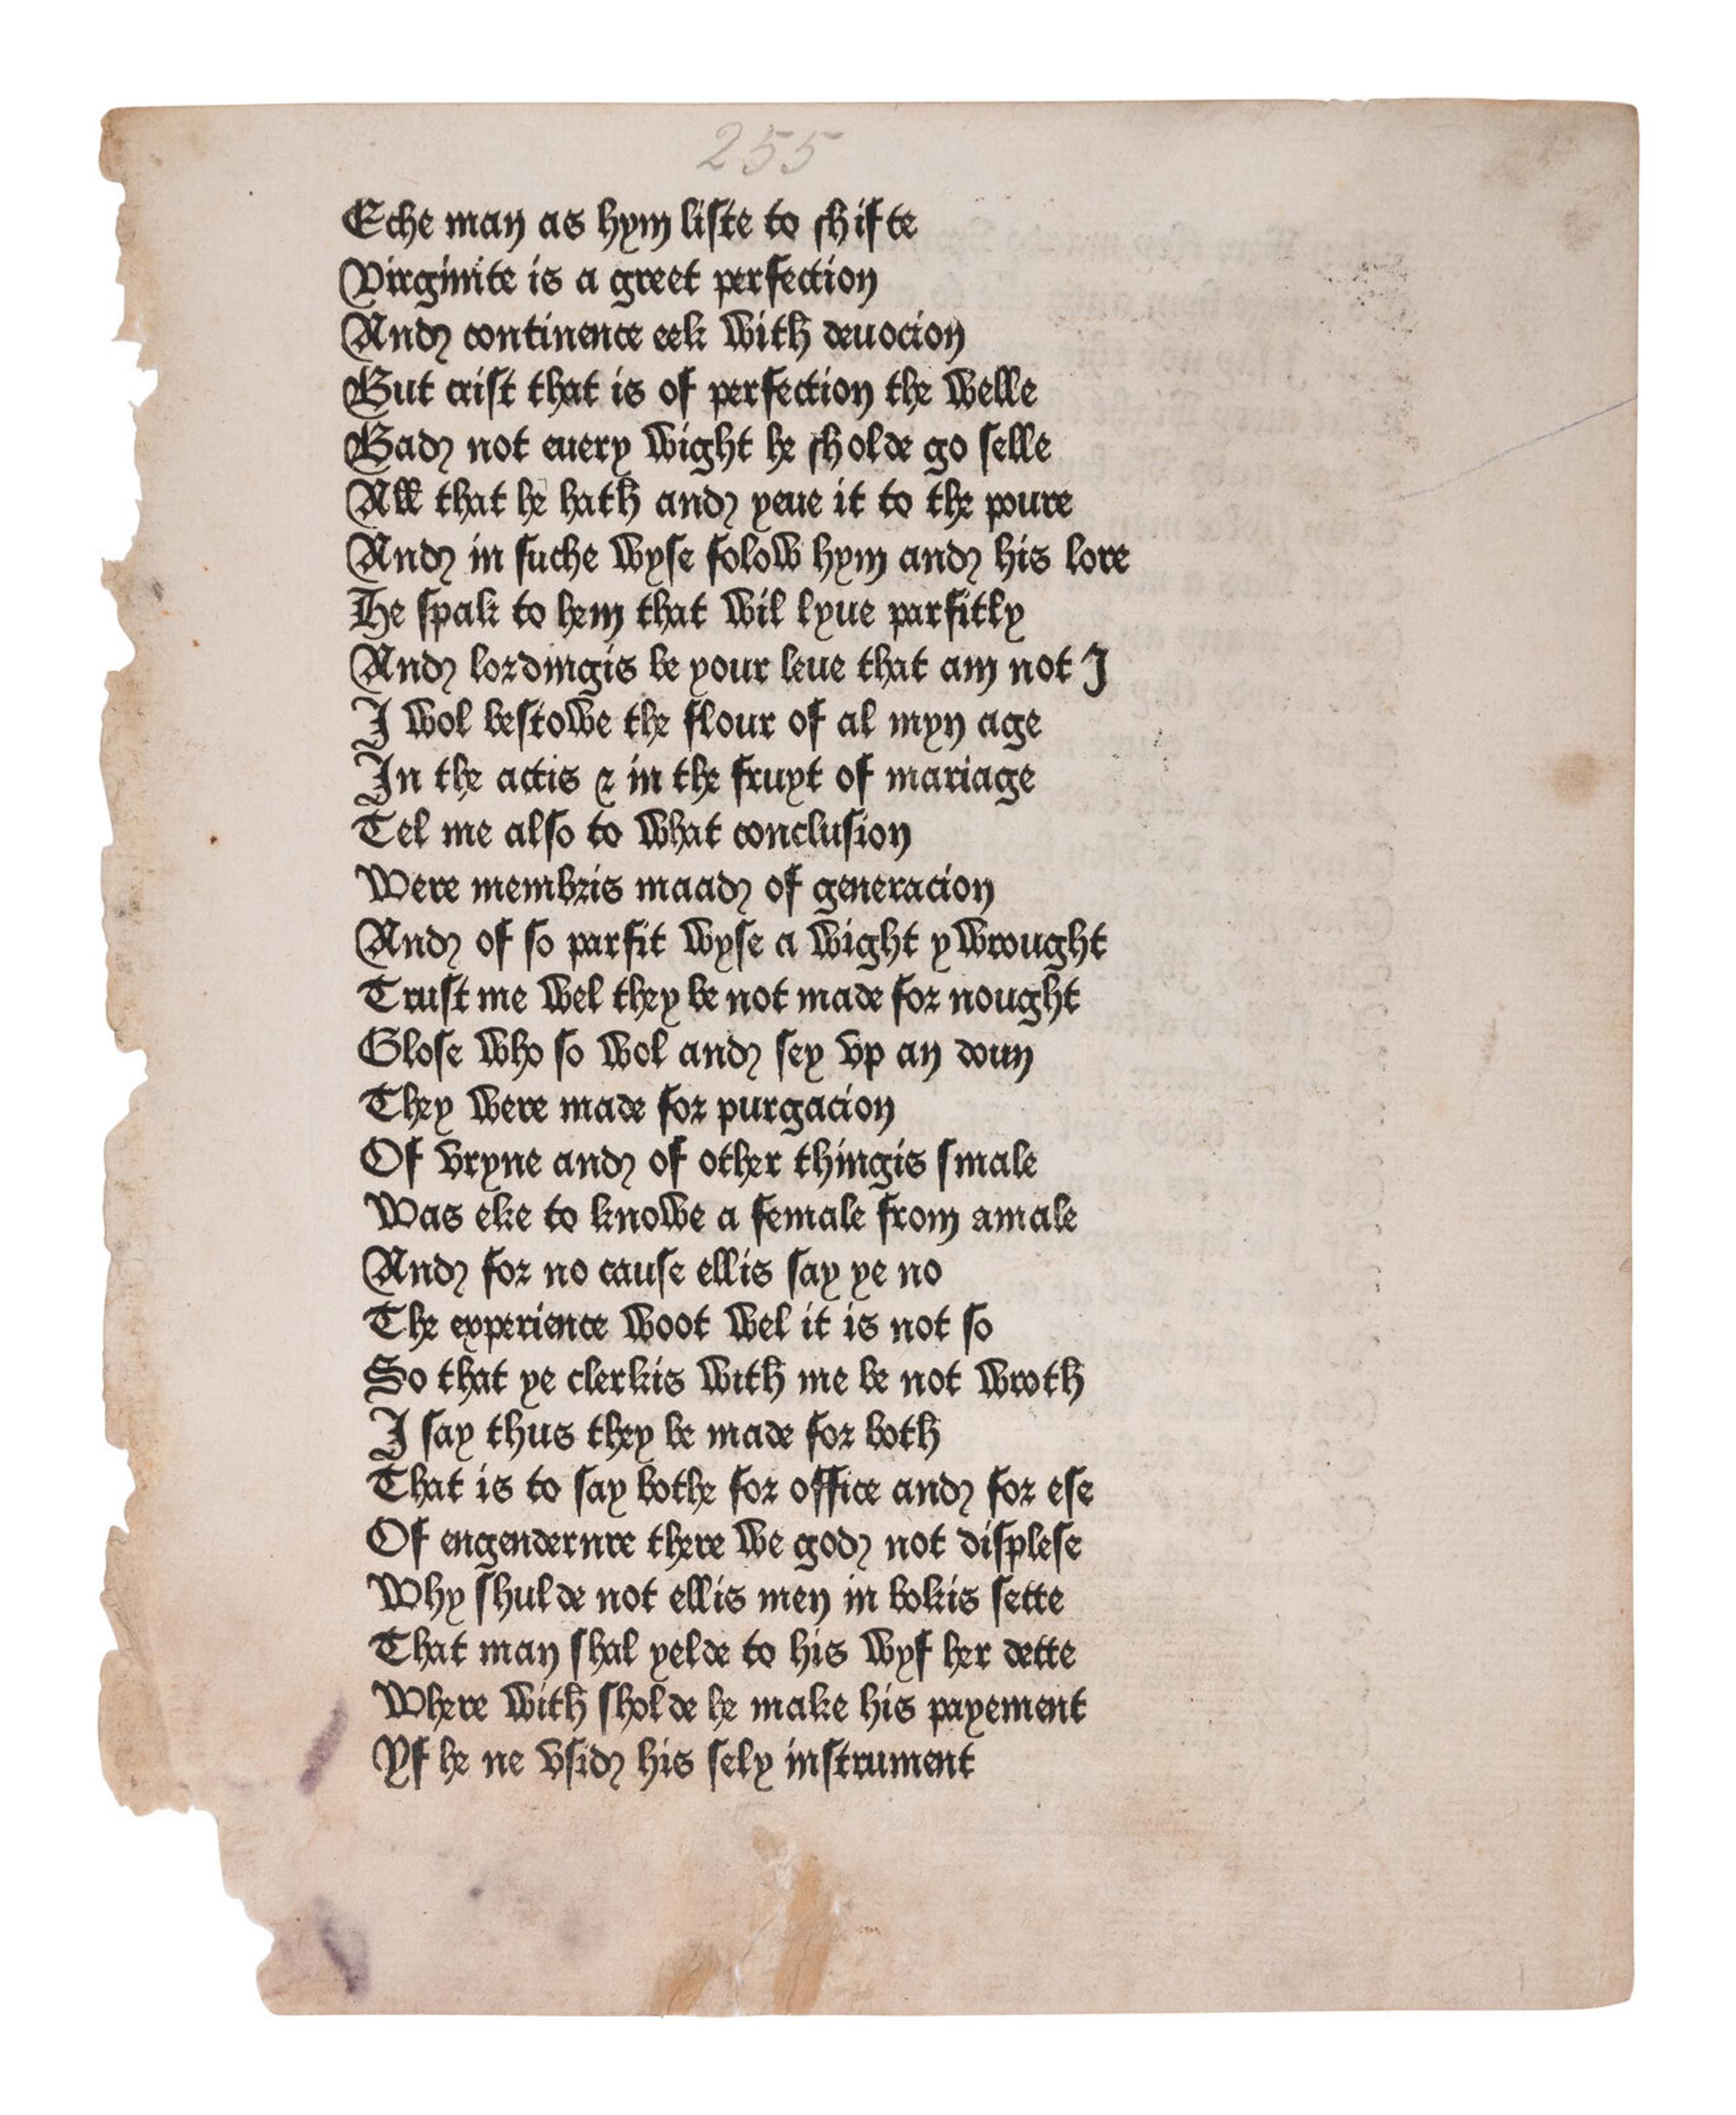 255
Eche man as hym liste to shifte
Virginite is a greet perfection
And continence eek with deuocion
But crist that is of perfection the welle
Bad not euery wight he sholde go selle
All that he hath and yeue it to the poure
And in suche wyse folow hym and his lore
He spak to hem that wil lyue parfitly
And lordingis be your leue that am not I
I wol bestowe the flour of al myn age
In the actis & in the fruyt of mariage
Tel me also to what conclusion
Were membris maad of generacion
And of so parfit wyse a wight y wrought
Trust me wel they be not made for nought
Glose who so wol and sey vp an doun
They were made for purgacion
Of vryne and of other thingis smale
Was eke to knowe a female from amale
And for no cause ellis say ye no
The experience woot wel it is not so
So that ye clerkis with me be not wroth
I say thus they be made for both
That is to say bothe for office and for ese
Of engendernre there we god not displese
Why shulde not ellis men in bokis sette
That man shal yelde to his wyf her dette
Where with sholde he make his payement
Yf he ne vsid his sely instrument